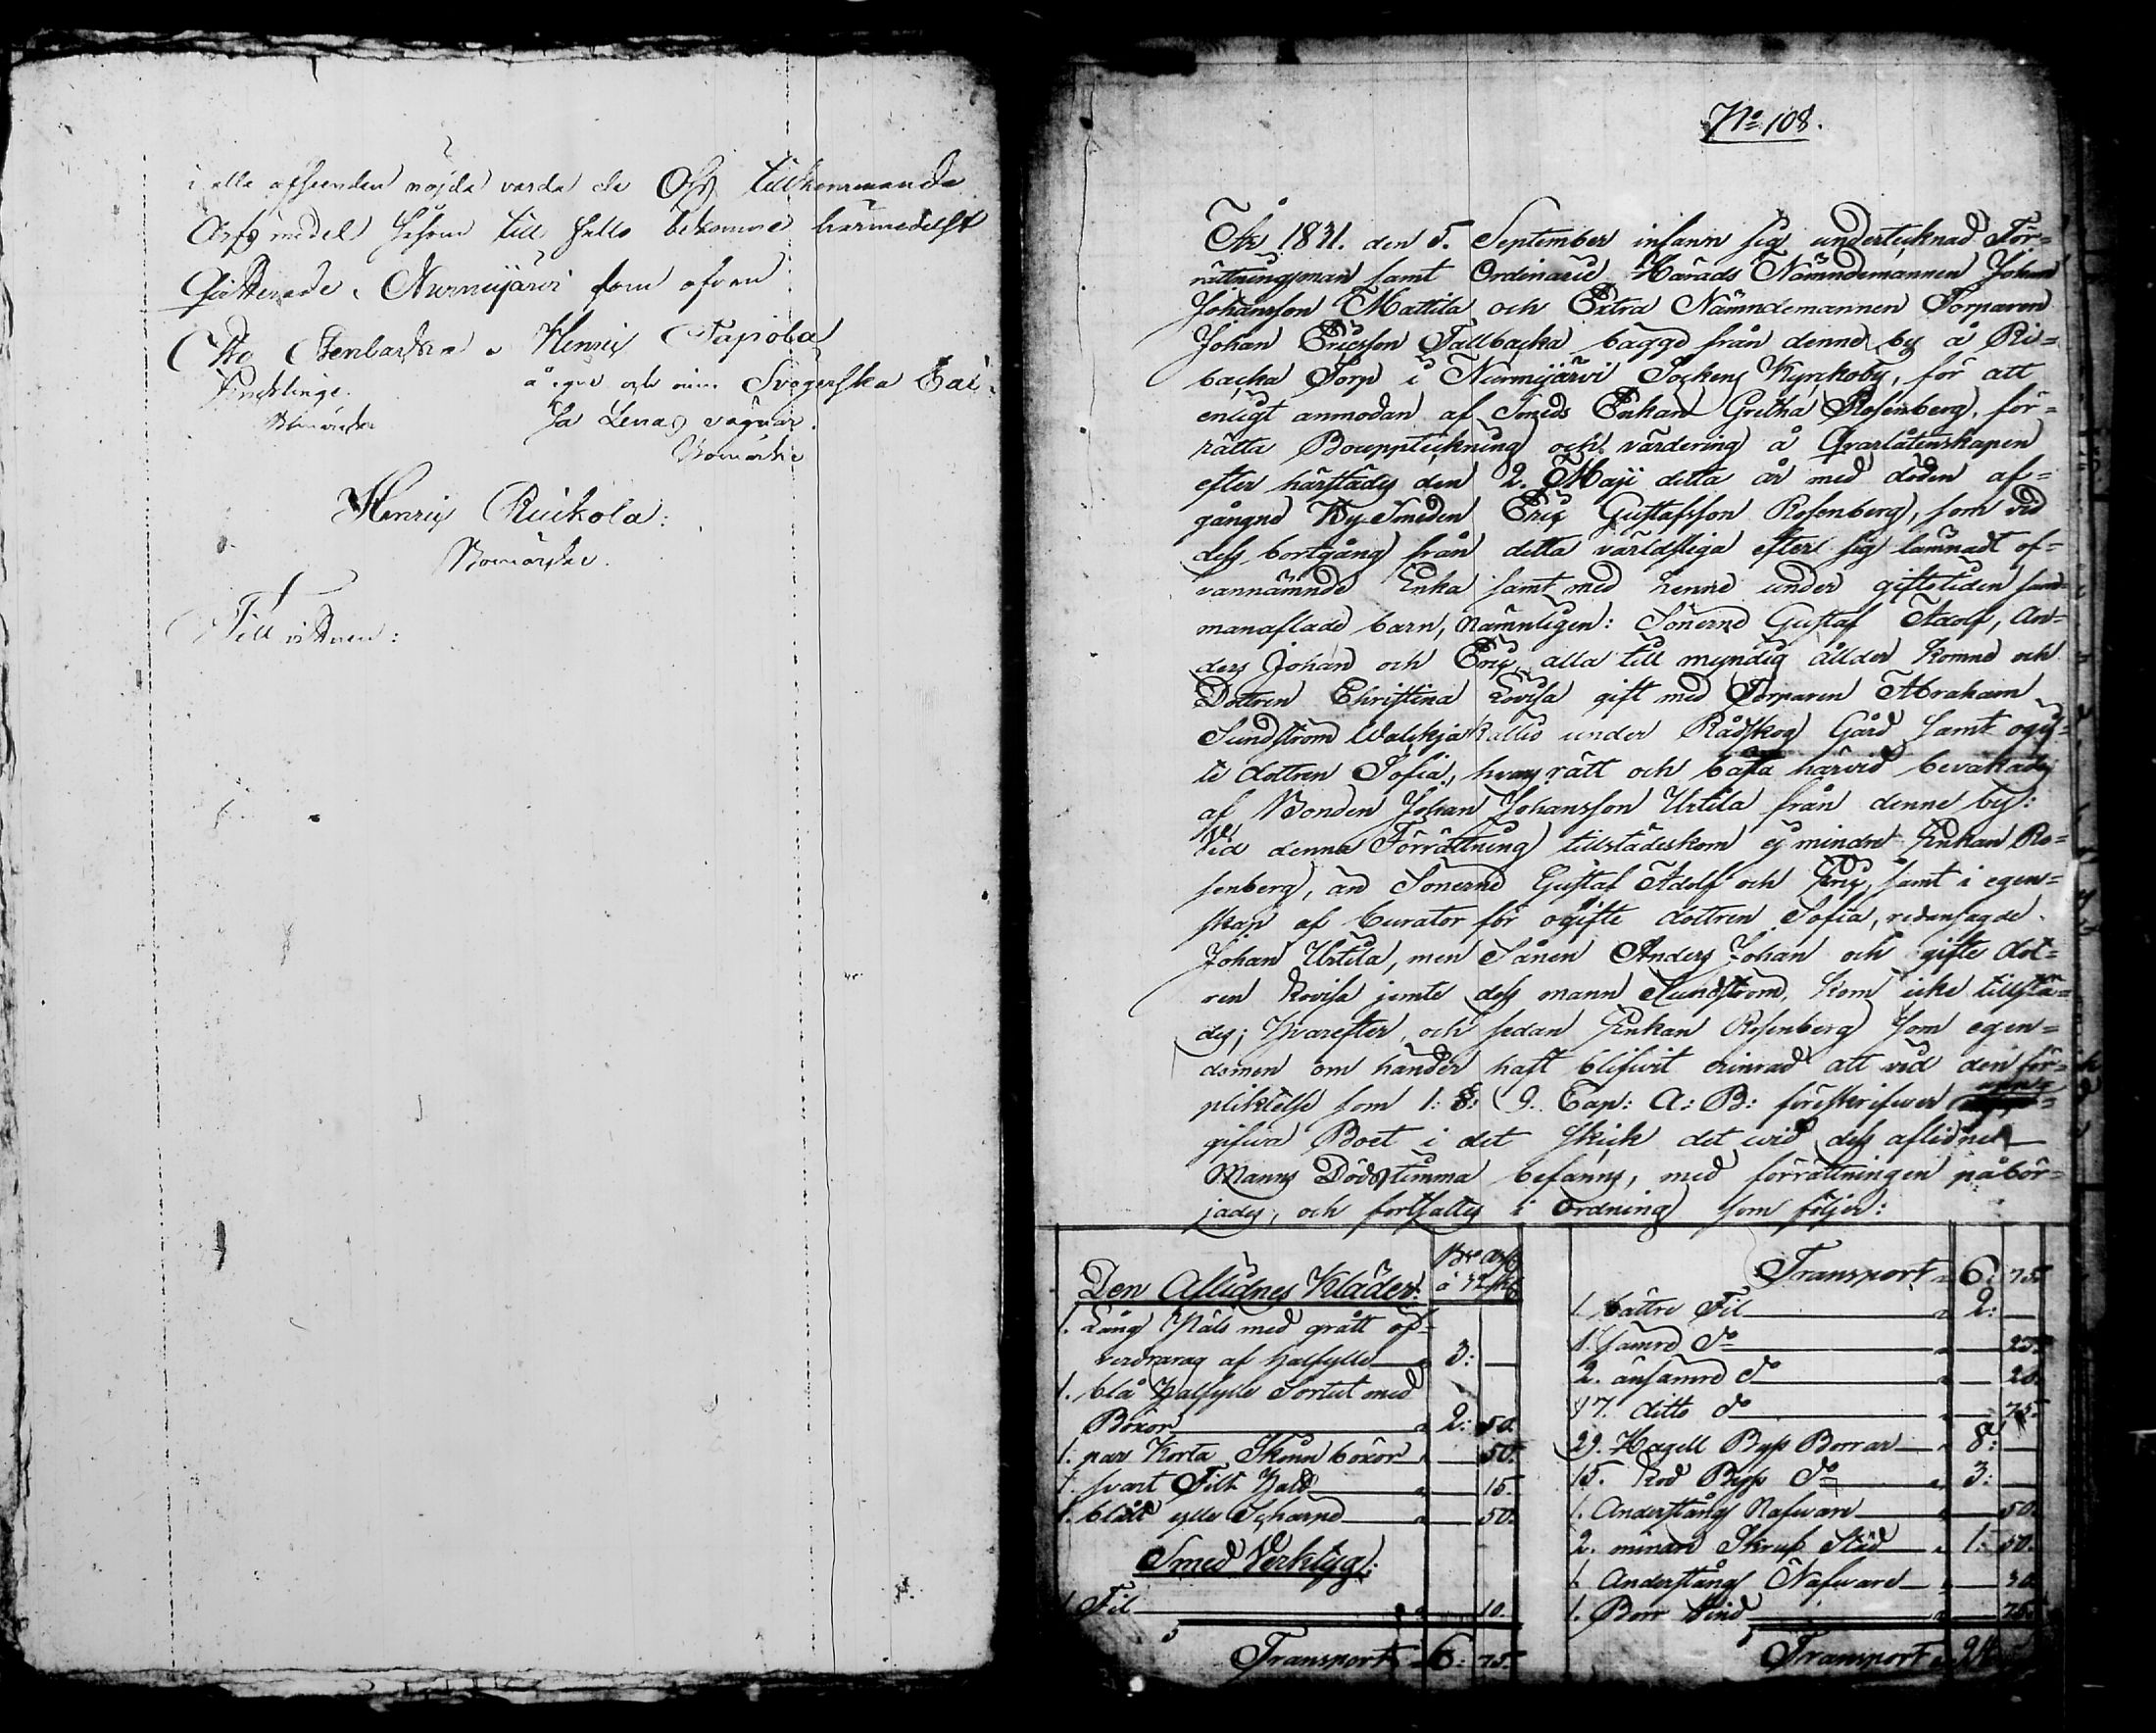 i alla afseenden nöjda varda de Oss tillkommande
Arfs medel såsom till fullo bekomne härmedelst
qvitterade, Nurmijärvi som ofvan
Otto Stenbacka Henric Tapiola
å egne och min Svägerska Cai-
Bomärke sa Lenas vägnar.
Bomärke
Henric Ruikola:
Bomärke.
Till vittnen:
No 108.
År 1831. den 5. September infann sig undertecknad För-
rättningsman samt Ordinarie Härads Nämndemannen Johan
Johansson Mattila och Extra Nämndemannen Torparen
Johan Ericsson Tallbacka bägge från denne by å Ri-
backa Torp i Nurmijärvi Sockens Kyrckoby, för att
enligt anmodan af Smeds Enkan Gretha Rosenberg, för-
rätta Bouppteckning och värdering å Qvarlåtenskapen
efter härstädes den 2. Maji detta år med döden af-
gångne By Smeden Eric Gustafsson Rosenberg, som vid
dess bortgång från detta världsliga efter sig lämnadt of-
vannämnde Enka samt med henne under giftstiden sam-
manaflade barn, nämnligen: Sönerne Gustaf Adolf, An-
ders Johan och Eric, alla till myndig ållder komne och
Dottren Christina Lovisa gift med Torparen Abraham
Sundström Walckjakallio under Rådskog Gård samt ogif-
te dottren Sofia, hvars rätt och bästa härvid bevakades
af Bonden Johan Johansson Urtila från denne by:
Vid denna Förrättning tillstädeskom ej mindre Enkan Ro-
senberg, än Sönerne Gustaf Adolf och Eric, samt i egen-
skap af Curator för ogifte dottren Sofia, redansagde
Johan Urtila, men Sånen Anders Johan och gifte dot-
ren Lovisa jemte dess mann Sundström, kom icke tillstä-
des; Hvarefter, och sedan Enkan Rosenberg som egen-
domen om händer haft blifvit erinrad att vid den för-
pliktelse som 1: §: 9. Cap: A: B: föreskrifver uppg-
gifva Boet i det skick det wid dess aflidne
Manns Dödstimma befanns, med förrättningen påbör-
jades, och fortsattes i ordning som följer:
Den Aflidnes Kläder: Bco Ass
1. Lång Päls med grått öf-
verdrarag af halfylle 3: —
1. blå Halfylle Sortut med
Böxor 2: 50.
1. par Korta Skinn böxor — 50.
1. svart Filt Hatt — 15.
1. blått ylle Schärp — 50.
Smed Verktyg:
1. Fil — 10.
Transport 6: 75.
Transport 6: 75.
1. bättre Fil 2: —
1. sämre Do — 25.
2. änsämre Do — 20.
17. ditto do — 75.
29. Hagell Byss Borrar 8: —
15. Lod Byss Do 3: —
1. Anderstångs Nafvare — 50.
2. mindre Skruf Städ 1: 50.
1. Anderstångs Nafvare — 30.
1. Borr Vind — 75.
Transport 24